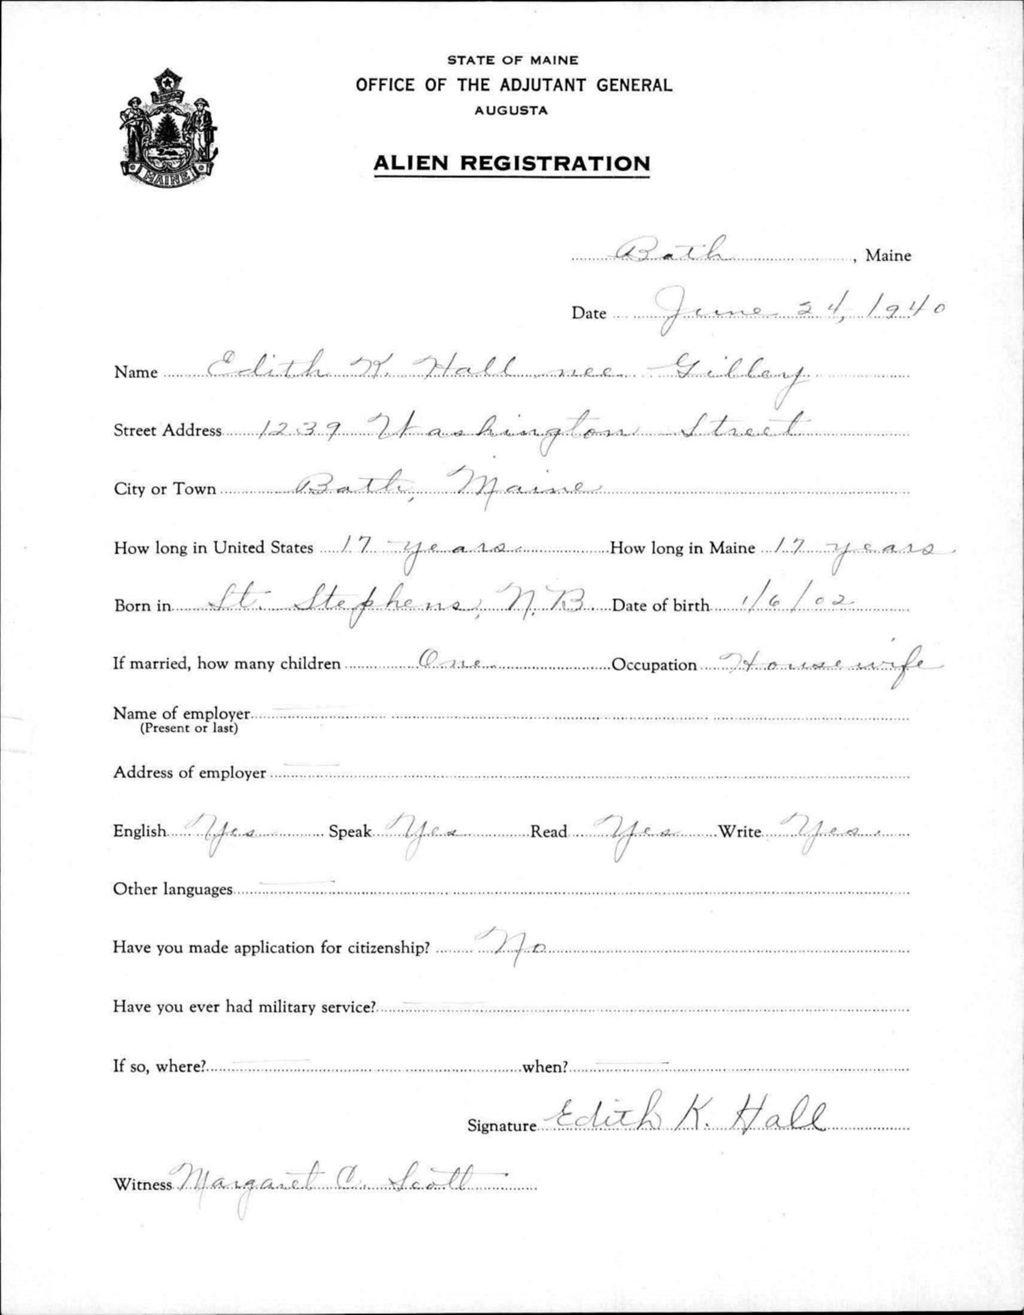 STATE OF MAINE
OFFICE OF THE ADJUTANT GENERAL
AUGUSTA
ALIEN REGISTRATION
MAINE
Bath, Maine
Date June 24, 1940
Name Edith K. Hall nee Gilley
Street Address 1239 Washington Street
City or Town Bath, Maine
How long in United States 17 years How long in Maine 17 years
Born in St. Stephens, N.B. Date of birth 1/6/02
If married, how many children One Occupation Housewife
Name of employer
(Present or last)
Address of employer
English Yes Speak Yes Read Yes Write Yes.
Other languages
Have you made application for citizenship? No
Have you ever had military service?
If so, where? when?
Signature Edith K. Hall
Witness Margaret C. Scott